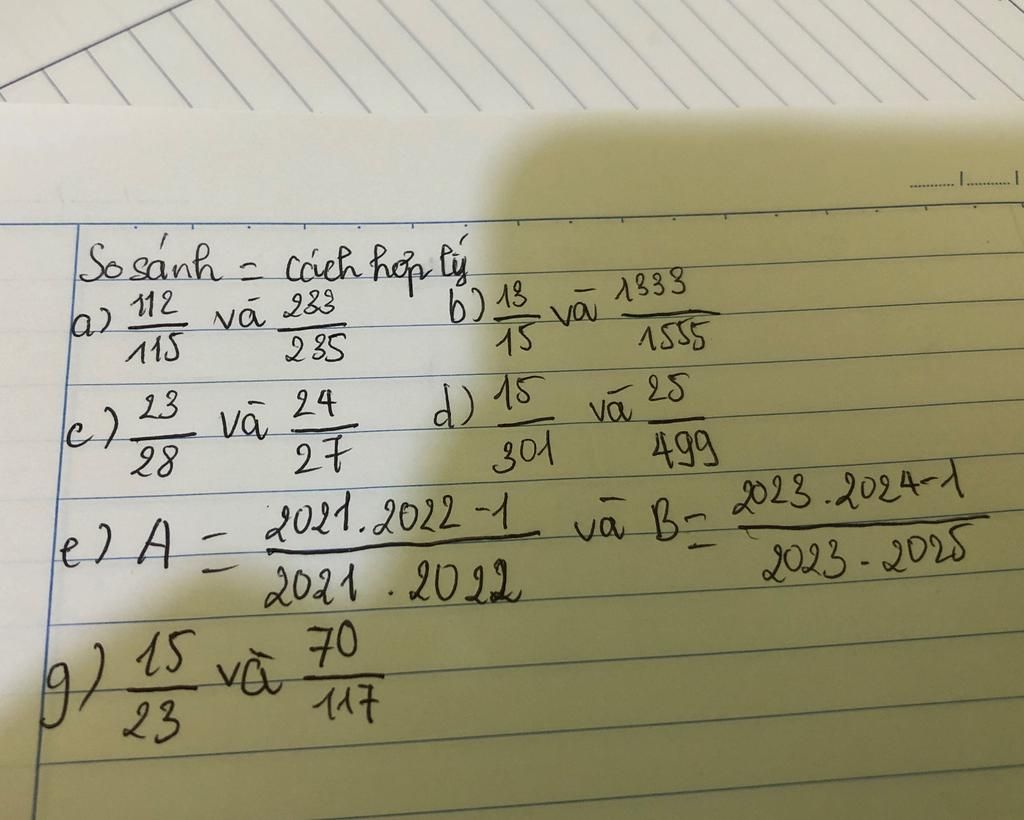 So sánh = cách hợp lý
a) 112/115 và 233/235 b) 13/15 và 1333/1555
c) 23/28 và 24/27 d) 15/301 và 25/499
e) A = 2021.2022-1/2021.2022 và B = 2023.2024-1/2023.2025
g) 15/23 và 70/117